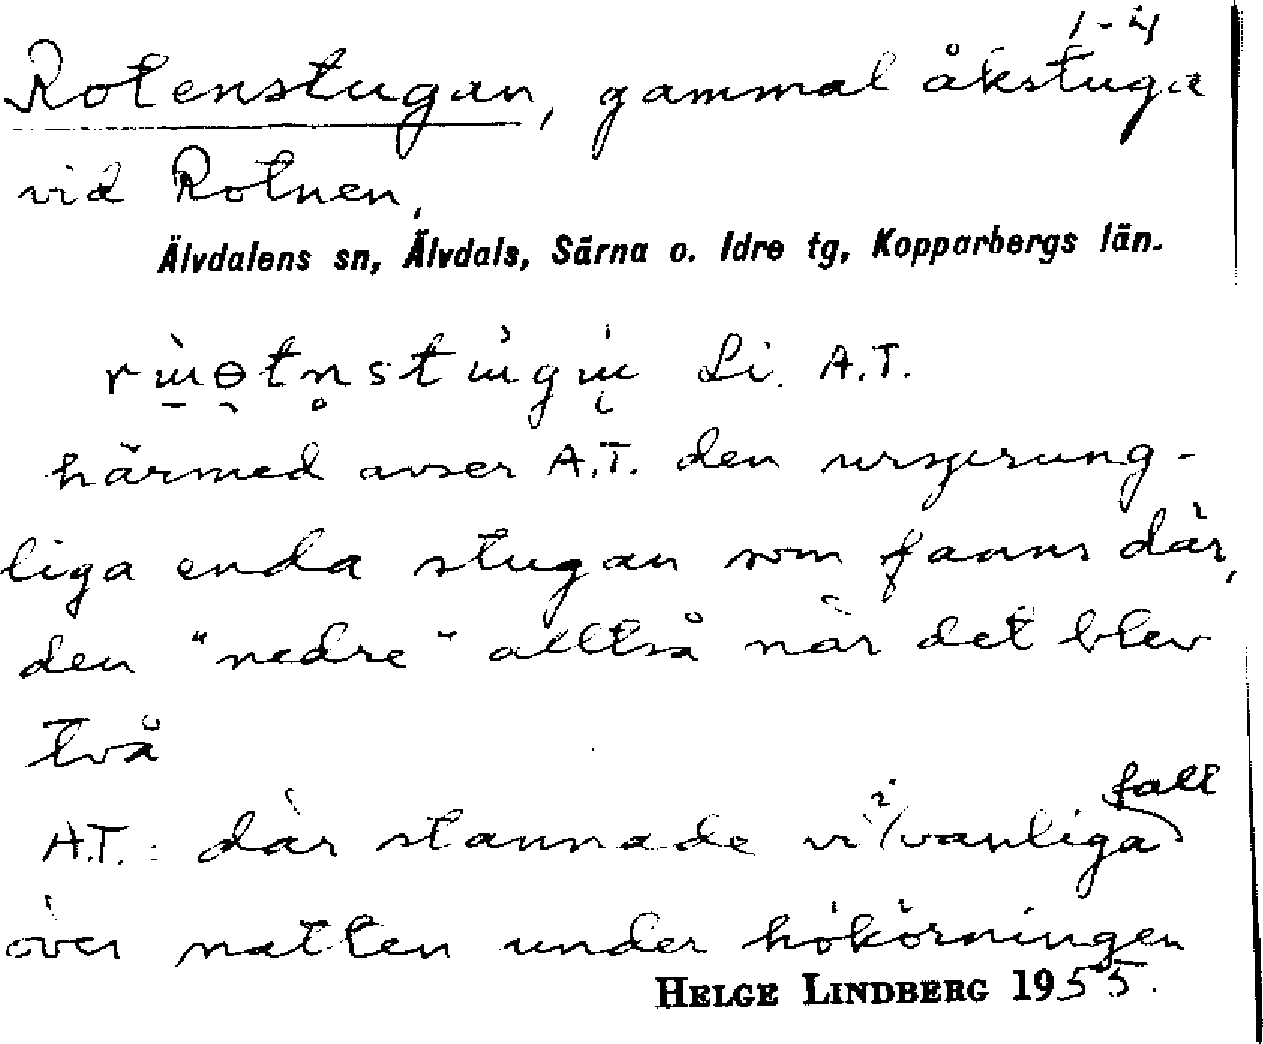 1-4
Rotenstugan, gammal åkstuga
vid Rotnen,
Älvdalens sn, Älvdals, Särna o. Idre tg, Kopparbergs län.
Li. A.T.
härmed avser A.T. den ursprung-
liga enda stugan som fanns där,
den "nedre" alltså när det blev
två
A.T.: där stannade vi i vanliga fall
över natten under hökörningen
HELGE LINDBERG 1955.